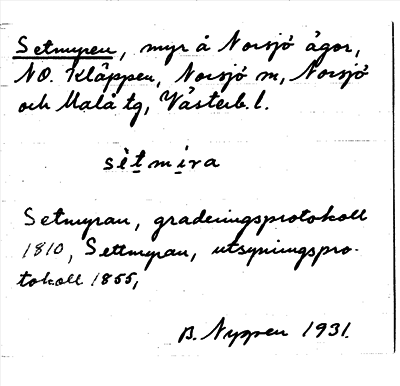 Setmyren, myr å Norsjö ägor,
NO. Kläppen, Norsjö sn, Norsjö
och Malå tg, Västerb. l.
sètmira
Setmyran, graderingsprotokoll
1810, Settmyran, utsyningspro-
tokoll 1855,
B. Nyppen 1931.